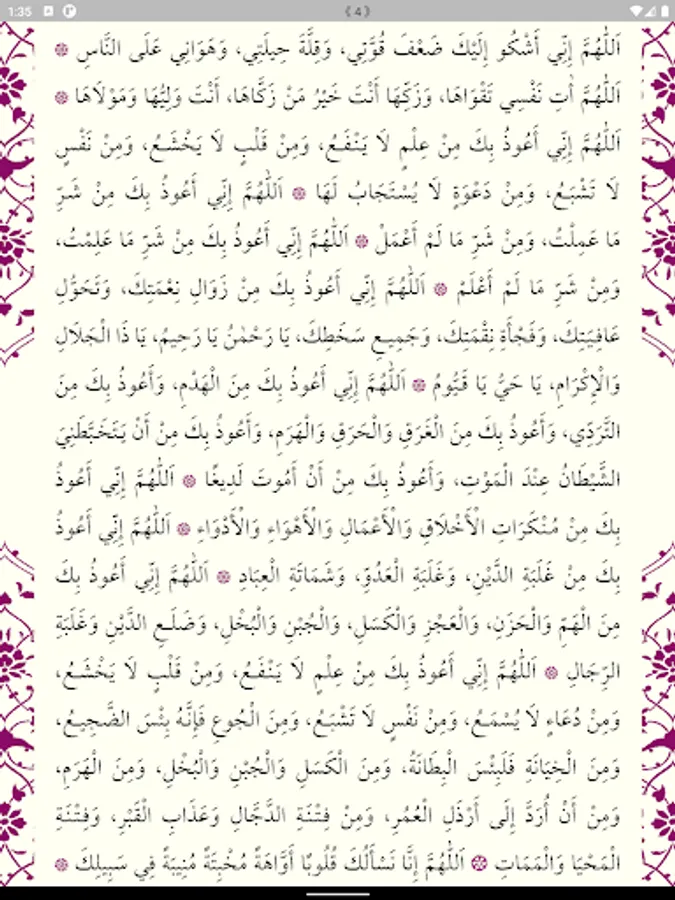 1:35 ﴾4﴿
اَللّٰهُمَّ إِنِّي أَشْكُو إِلَيْكَ ضَعْفَ قُوَّتِي، وَقِلَّةَ حِيلَتِي، وَهَوَانِي عَلَى النَّاسِ ۞
اَللّٰهُمَّ اٰتِ نَفْسِي تَقْوَاهَا، وَزَكِّهَا أَنْتَ خَيْرُ مَنْ زَكَّاهَا، أَنْتَ وَلِيُّهَا وَمَوْلَاهَا ۞
اَللّٰهُمَّ إِنِّي أَعُوذُ بِكَ مِنْ عِلْمٍ لَا يَنْفَعُ، وَمِنْ قَلْبٍ لَا يَخْشَعُ، وَمِنْ نَفْسٍ
لَا تَشْبَعُ، وَمِنْ دَعْوَةٍ لَا يُسْتَجَابُ لَهَا ۞ اَللّٰهُمَّ إِنِّي أَعُوذُ بِكَ مِنْ شَرِّ
مَا عَمِلْتُ، وَمِنْ شَرِّ مَا لَمْ أَعْمَلْ ۞ اَللّٰهُمَّ إِنِّي أَعُوذُ بِكَ مِنْ شَرِّ مَا عَلِمْتُ،
وَمِنْ شَرِّ مَا لَمْ أَعْلَمْ ۞ اَللّٰهُمَّ إِنِّي أَعُوذُ بِكَ مِنْ زَوَالِ نِعْمَتِكَ، وَتَحَوُّلِ
عَافِيَتِكَ، وَفَجْأَةِ نِقْمَتِكَ، وَجَمِيعِ سَخَطِكَ، يَا رَحْمٰنُ يَا رَحِيمُ، يَا ذَا الْجَلَالِ
وَالْإِكْرَامِ، يَا حَيُّ يَا قَيُّومُ ۞ اَللّٰهُمَّ إِنِّي أَعُوذُ بِكَ مِنَ الْهَدْمِ، وَأَعُوذُ بِكَ مِنَ
التَّرَدِّي، وَأَعُوذُ بِكَ مِنَ الْغَرَقِ وَالْحَرَقِ وَالْهَرَمِ، وَأَعُوذُ بِكَ مِنْ أَنْ يَتَخَبَّطَنِيَ
الشَّيْطَانُ عِنْدَ الْمَوْتِ، وَأَعُوذُ بِكَ مِنْ أَنْ أَمُوتَ لَدِيغًا ۞ اَللّٰهُمَّ إِنِّي أَعُوذُ
بِكَ مِنْ مُنْكَرَاتِ الْأَخْلَاقِ وَالْأَعْمَالِ وَالْأَهْوَاءِ وَالْأَدْوَاءِ ۞ اَللّٰهُمَّ إِنِّي أَعُوذُ
بِكَ مِنْ غَلَبَةِ الدَّيْنِ، وَغَلَبَةِ الْعَدُوِّ، وَشَمَاتَةِ الْعِبَادِ ۞ اَللّٰهُمَّ إِنِّي أَعُوذُ بِكَ
مِنَ الْهَمِّ وَالْحَزَنِ، وَالْعَجْزِ وَالْكَسَلِ، وَالْجُبْنِ وَالْبُخْلِ، وَضَلَعِ الدَّيْنِ وَغَلَبَةِ
الرِّجَالِ ۞ اَللّٰهُمَّ إِنِّي أَعُوذُ بِكَ مِنْ عِلْمٍ لَا يَنْفَعُ، وَمِنْ قَلْبٍ لَا يَخْشَعُ،
وَمِنْ دُعَاءٍ لَا يُسْمَعُ، وَمِنْ نَفْسٍ لَا تَشْبَعُ، وَمِنَ الْجُوعِ فَإِنَّهُ بِئْسَ الضَّجِيعُ،
وَمِنَ الْخِيَانَةِ فَلَبِئْسَ الْبِطَانَةُ، وَمِنَ الْكَسَلِ وَالْجُبْنِ وَالْبُخْلِ، وَمِنَ الْهَرَمِ،
وَمِنْ أَنْ أُرَدَّ إِلَى أَرْذَلِ الْعُمُرِ، وَمِنْ فِتْنَةِ الدَّجَّالِ وَعَذَابِ الْقَبْرِ، وَفِتْنَةِ
الْمَحْيَا وَالْمَمَاتِ ۞ اَللّٰهُمَّ إِنَّا نَسْأَلُكَ قُلُوبًا أَوَّاهَةً مُخْبِتَةً مُنِيبَةً فِي سَبِيلِكَ ۞